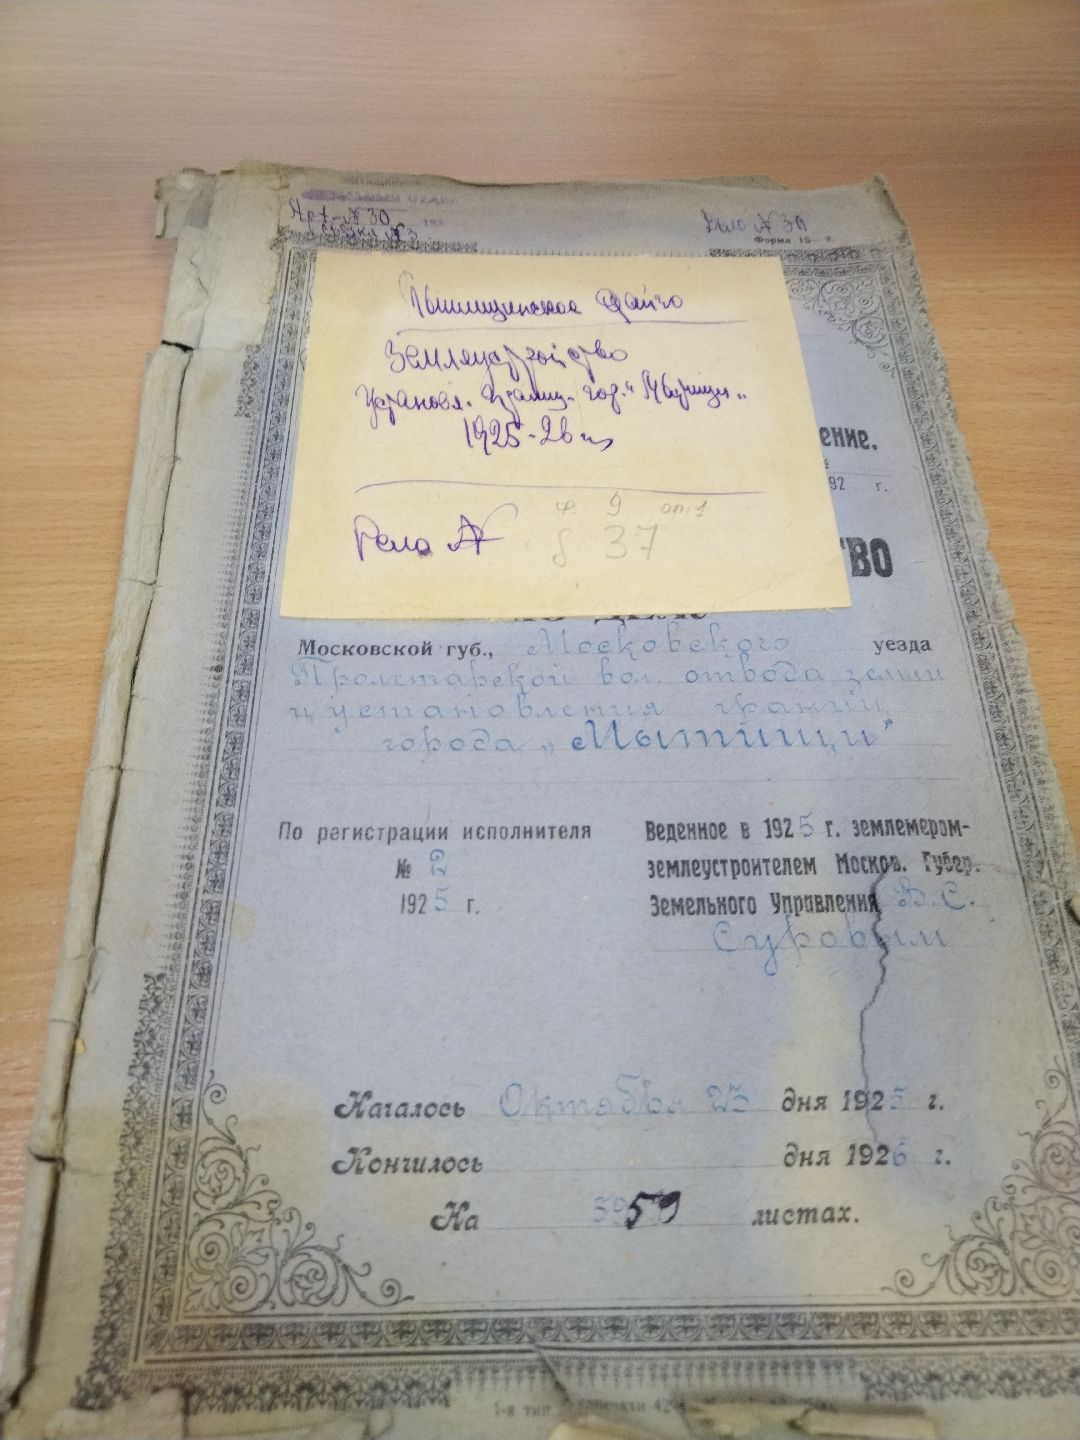 Арх. № 30
Связка № 3
192
Дело № 30
Форма 15
Мытищинское Райзо
Землеустройство
Установл. границ. гор. "Мытищи"
1925-26 гг
Дело №
ф. 9 оп. 1
д 37
ение.
№
92 г.
ТВО
Московской губ., Московского уезда
Пролетарской вол. отвода земли
и установления границ
города „Мытищи"
По регистрации исполнителя
№ 2
1925 г.
Веденное в 1925 г. землемером-
землеустроителем Москов. Губер.
Земельного Управления В. С.
Суровым
Началось Октября 23 дня 1925 г.
Кончилось дня 1926 г.
На 59 59 листах.
1-я тип.